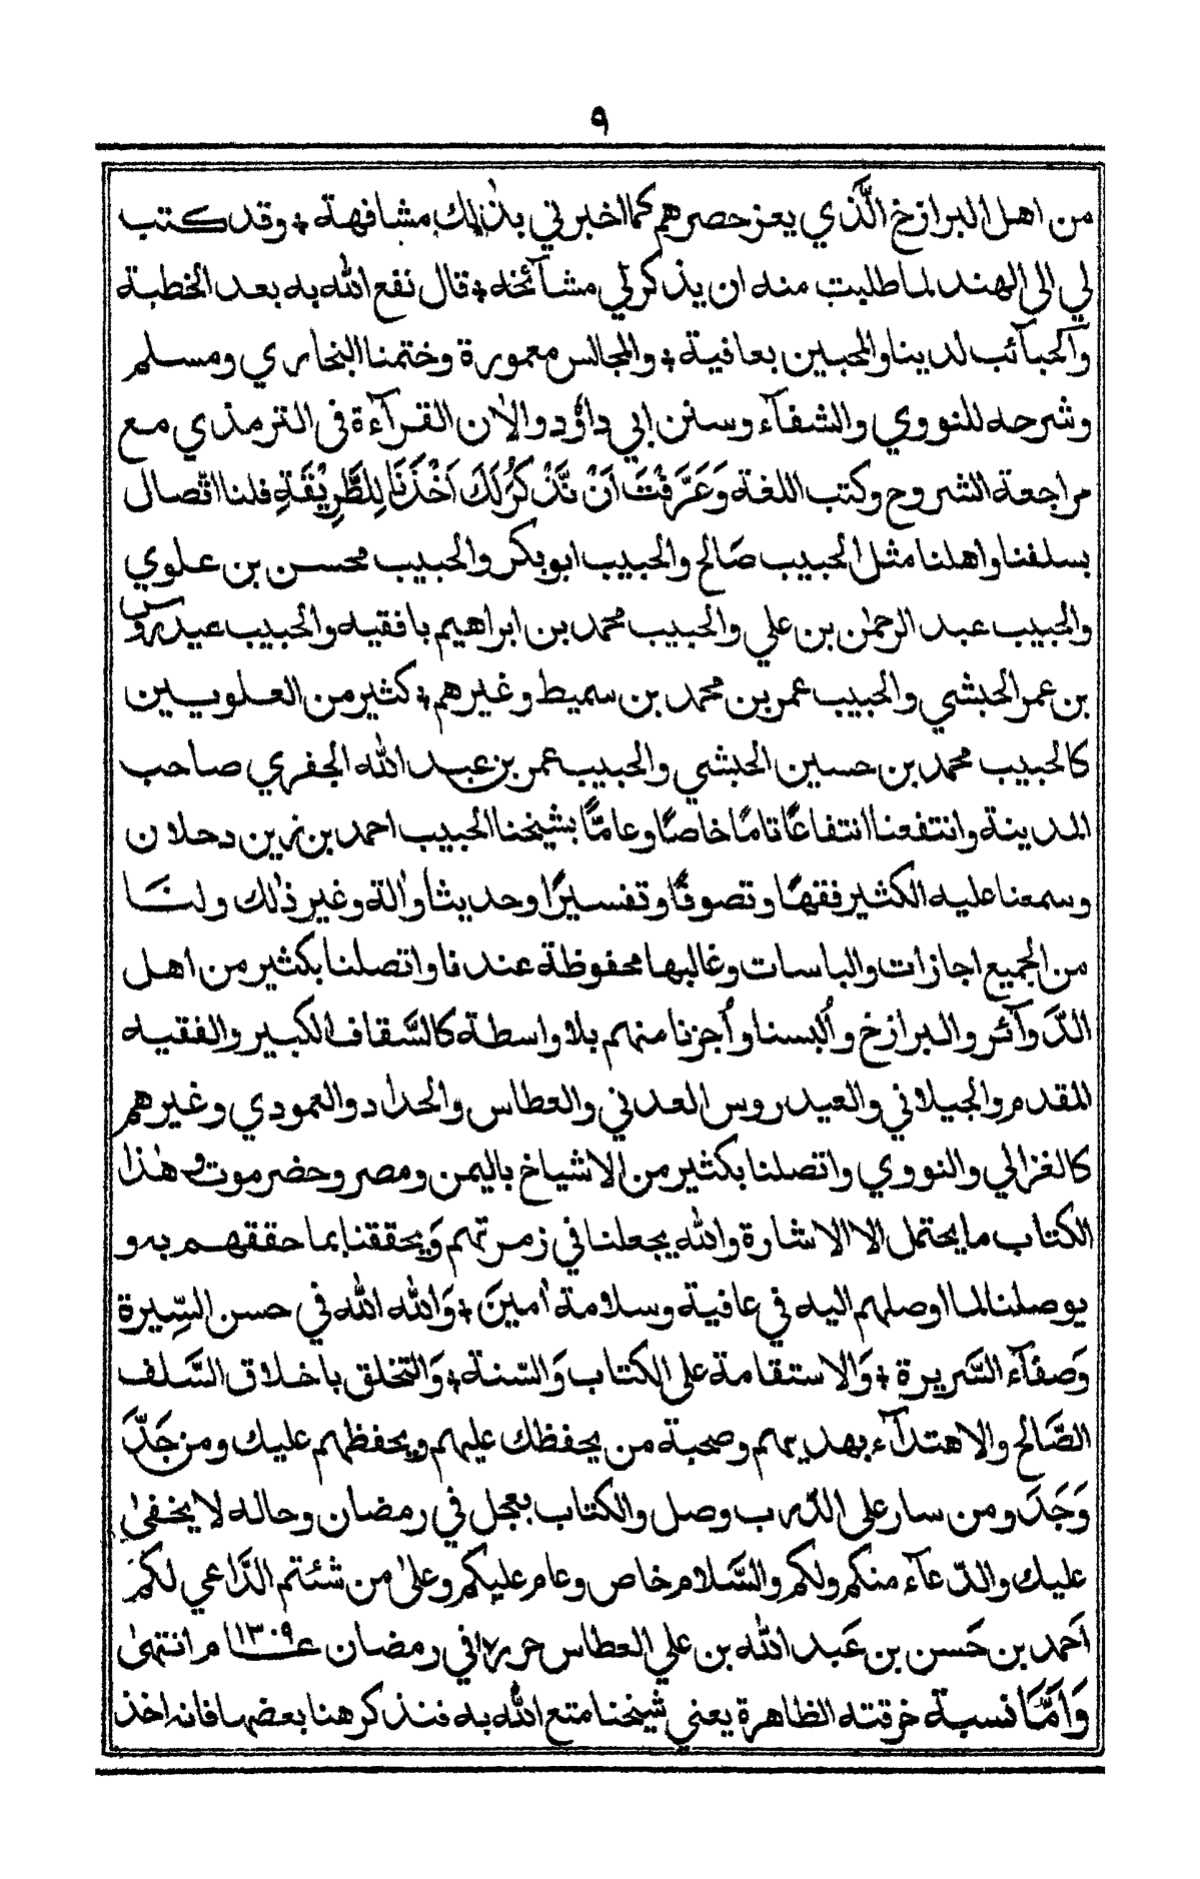 ٩
من اهل البرازخ الَّذي يعز حصرهم كما اخبرني بذٰلك مشافهة ۞ وقد كتب
لي الى الهند لما طلبت منه ان يذكر لي مشآئخه ۞ قال نفع الله به بعد الخطبة
وآلحبآئب لدينا والمحبين بعافية ۞ والمجالس معمورة وختمنا البخاري ومسلم
وشرحه للنووي والشفآء وسنن ابي داؤد والاٰن القرآءة في الترمذي مع
مراجعة الشروح وكتب اللغة وَعَرَفْتَ اَنْ نَّذْكُرُ لَكَ اَخْذَنَا لِلطَّرِيْقَةِ فلنا اتّصال
بسلفنا واهلنا مثل الحبيب صَالح والحبيب ابوبكر والحبيب محسن بن علوي
والحبيب عبد الرحمٰن بن علي والحبيب محمد بن ابراهيم بافقيه والحبيب عيدروس
بن عمر الحبشي والحبيب عمر بن محمد بن سميط وغيرهم ۞ كثير من العلويين
كالحبيب محمد بن حسين الحبشي والحبيب عمر بن عبد الله الجفري صاحب
المدينة وانتفعنا انتفاعًا تامًا خاصًا وعامًّا بشيخنا الحبيب احمد بن زين دحلان
وسمعنا عليه الكثير فقهًا وتصوفًا وتفسيرًا وحديثا واٰلة وغير ذٰلك ولنَا
من الجميع اجازات والباسات وغالبها محفوظة عندنا واتصلنا بكثير من اهل
الدَّوآئر والبرازخ واُلبسنا واُجزنا منهم بلا واسطة كالسَّقاف الكبير والفقيه
المقدم والجيلاني والعيدروس العدني والعطاس والحداد والعمودي وغيرهم
كالغزالي والنووي واتصلنا بكثير من الاشياخ باليمن ومصر وحضرموت وهٰذا
الكتاب ما يحتمل الا الاشارة والله يجعلنا في زمرتهم وَيحققنا بما حققهم به و
يوصلنا لما اوصلهم اليه في عافية وسلامة اٰمينَ ۞ وَالله الله في حسن السِّيرة
وَصفآء السَّريرة ۞ وَالاستقامة على الكتاب وَالسّنة ۞ وَالتخلق باخلاق السَّلف
الصَّالح والاهتدآء بهديهم وصحبة من يحفظك عليهم ويحفظهم عليك ومن جَدَّ
وَجَدَ ومن سار على الدّرب وصل والكتاب بعجل في رمضان وحاله لا يخفىٰ
عليك والدّعآء منكم ولكم والسَّلام خاص وعام عليكم وعلىٰ من شئتم الدَّاعي لكم
اَحمد بن حَسن بن عَبد الله بن علي العطاس حرر ١٧ في رمضان عـــ١٣٠٩ـــام انتهىٰ
وَاَمَّا نسبة خرقته الظاهرة يعني شيخنا متع الله به فنذكر هنا بعضها فانه اخذ